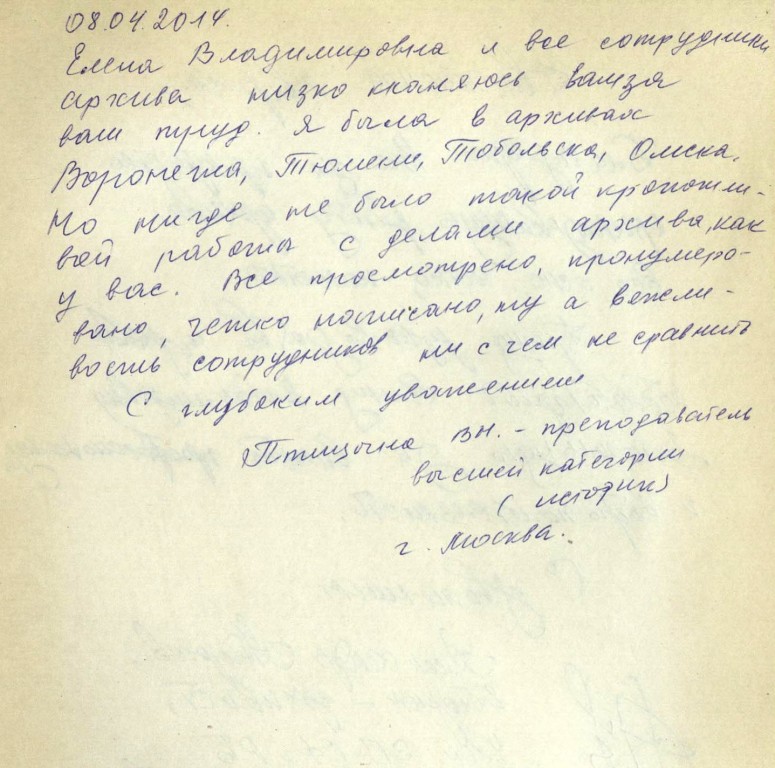 08.04.2014.
Елена Владимировна и все сотрудники
архива низко кланяюсь вам за
ваш труд. Я была в архивах
Воронежа, Тюмени, Тобольска, Омска.
Но нигде не было такой кропотли-
вой работы с делами архива, как
у вас. Все просмотрено, пронумеро-
вано, четко написано, ну а вежли-
вость сотрудников ни с чем не сравнить
С глубоким уважением
Птицына В.Н. - преподаватель
высшей категории
(историк)
г. Москва.